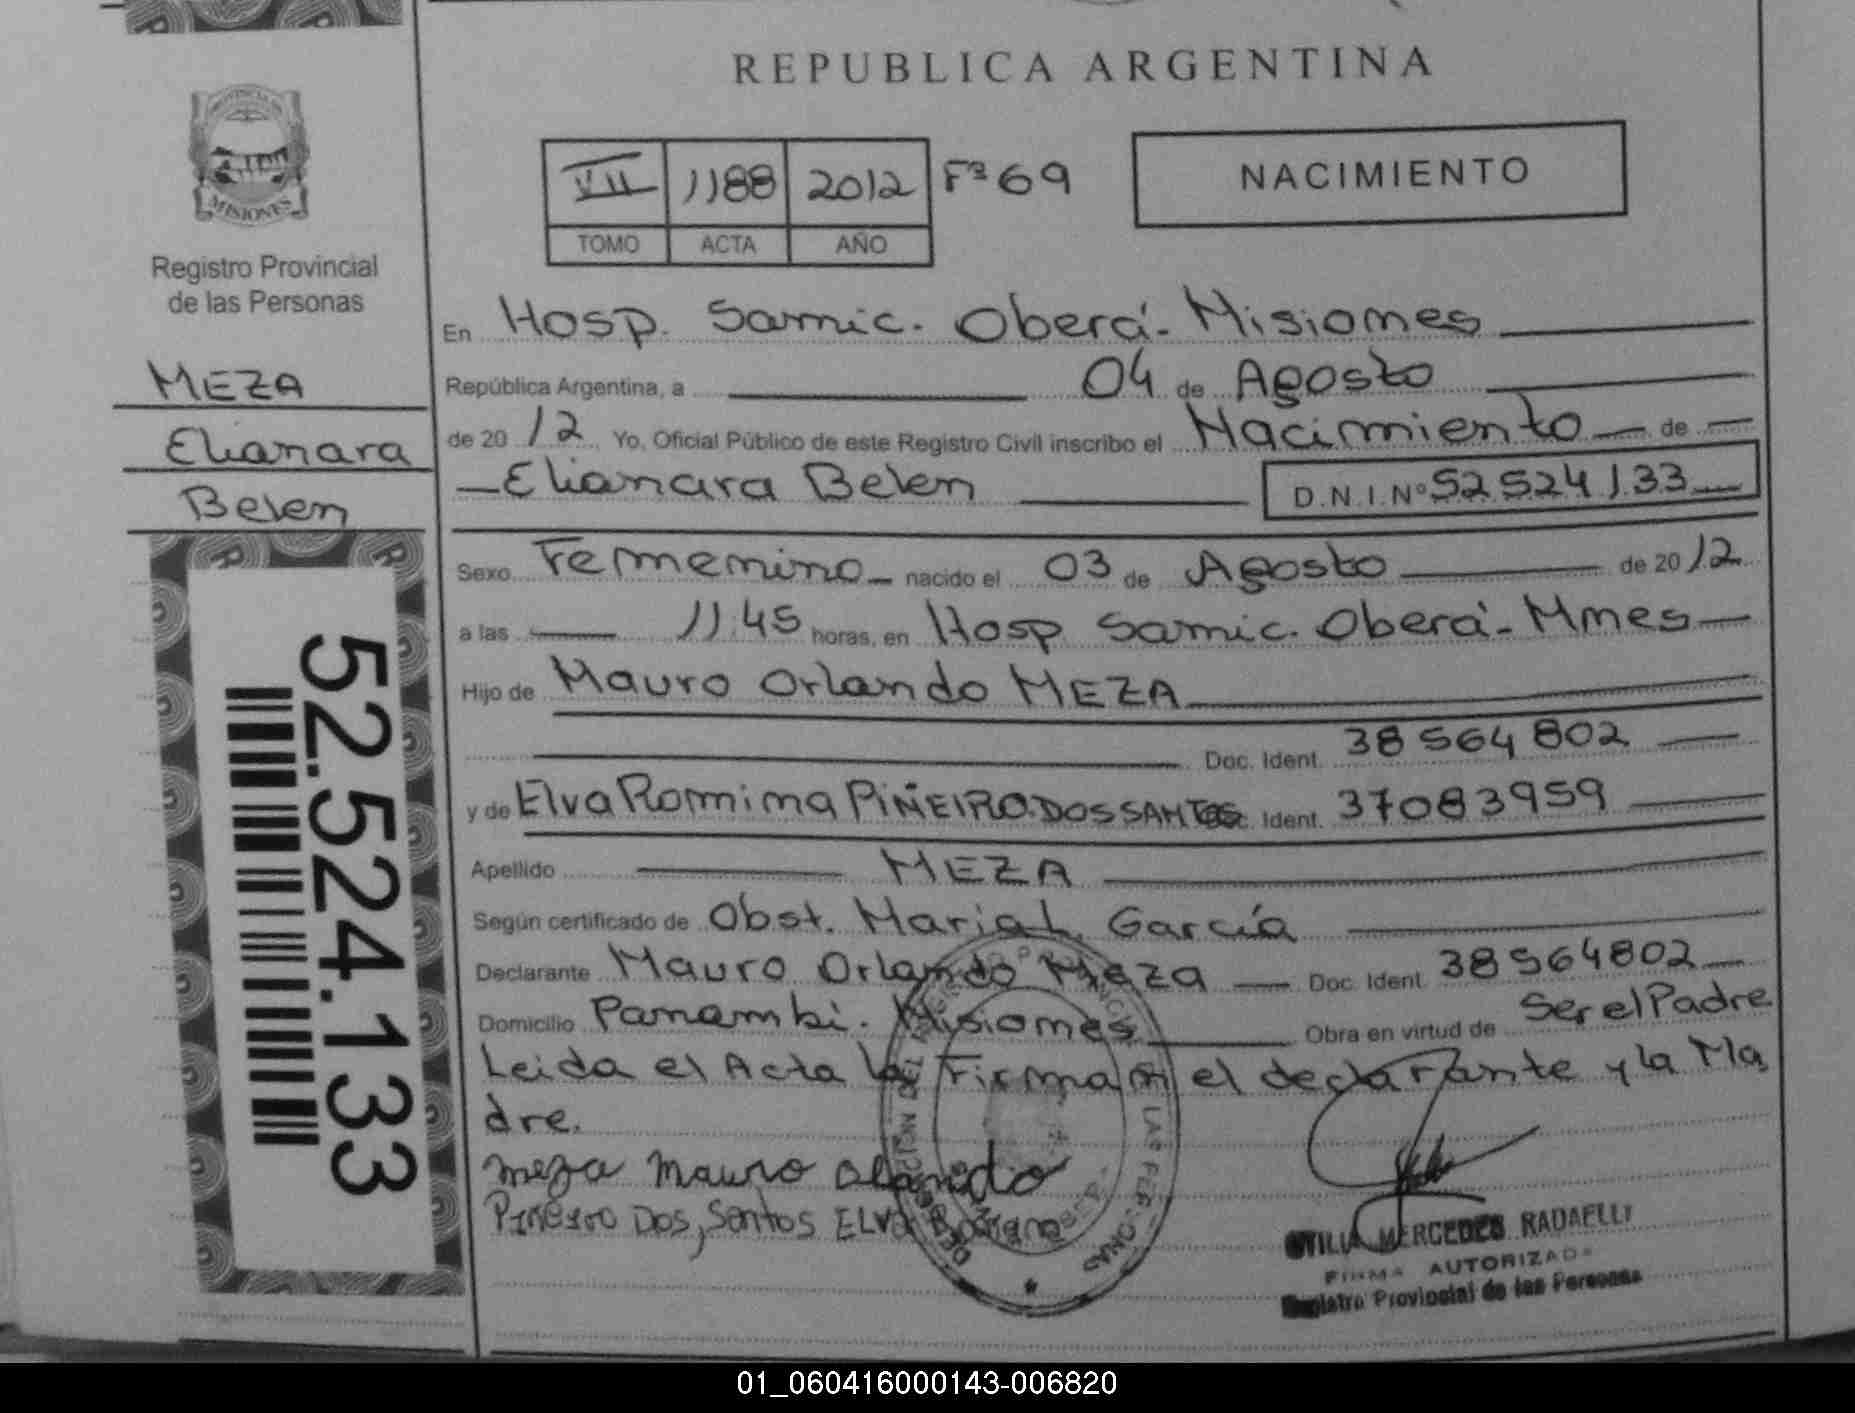 REPUBLICA ARGENTINA
PROVINCIA DE
MISIONES
Registro Provincial
de las Personas
MEZA
Elianara
Belen
52.524.133
VII 1188 2012 Fº 69
TOMO ACTA AÑO
NACIMIENTO
En Hosp. Samic. Oberá - Misiones
República Argentina, a 04 de Agosto
de 2012 Yo, Oficial Público de este Registro Civil inscribo el Nacimiento de
Elianara Belen D.N.I.Nº 52524133
Sexo Femenino nacido el 03 de Agosto de 2012
a las 11.45 horas, en Hosp Samic. Oberá - Mnes
Hijo de Mauro Orlando MEZA
Doc. Ident. 38564802
y de Elva Romina PIÑEIRO DOS SANTOS Doc. Ident. 37083959
Apellido MEZA
Según certificado de Obst. Maria L. García
Declarante Mauro Orlando Meza Doc. Ident. 38564802
Domicilio Panambi. Misiones Obra en virtud de Ser el Padre
Leida el Acta la Firman el declarante y la Ma
dre.
meza Mauro Olando
Piñeiro Dos, Santos ELVA
MERCEDES RADAELLI
FIRMA AUTORIZADA
Registro Provincial de las Personas
01_060416000143-006820